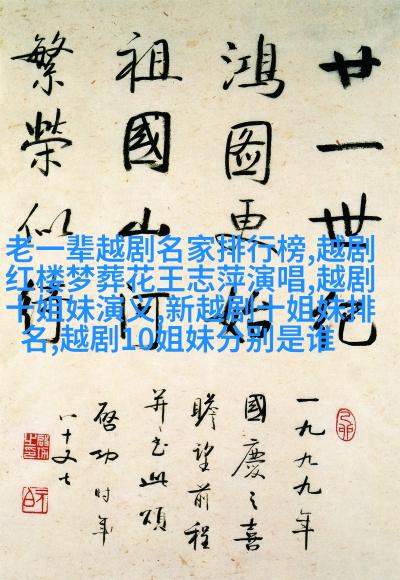 廿一世紀
鴻圖更始
祖國山河
繁榮似綺
老一辈越剧名家排行榜,越剧
红楼梦葬花王志萍演唱,越剧
十姐妹演义,新越剧十姐妹排
名,越剧10姐妹分别是谁
一九九九年
國慶之喜
瞻望前程
并书此頌
啓功时年
八十又七